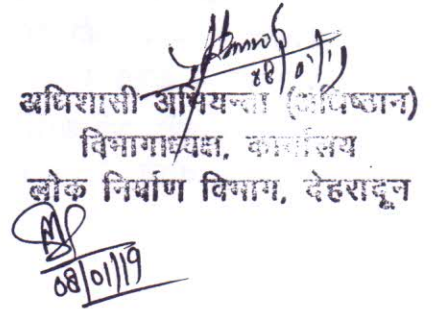 08/01/19
अधिशासी अभियन्ता (अधिष्ठान)
विभागाध्यक्ष, कार्यालय
लोक निर्माण विभाग, देहरादून
08/01/19